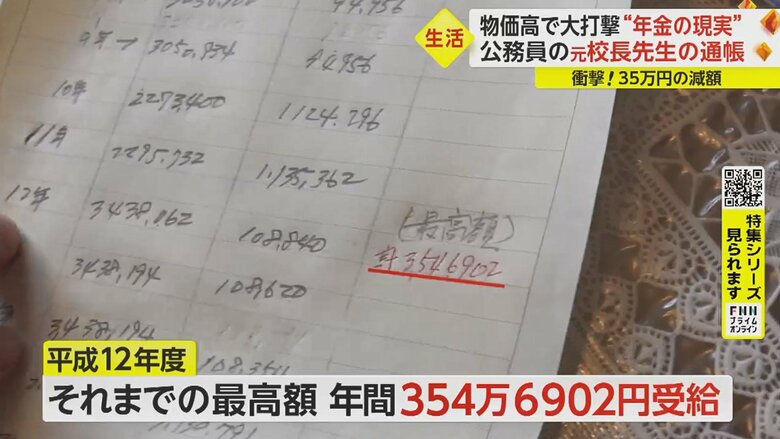 生活
物価高で大打撃“年金の現実”
公務員の元校長先生の通帳
衝撃！35万円の減額
9年→ 3050,934
94,956
10年 2273,400 1124,796
11年 2295,732 1,135,362
12年 3438,062 108,840
(最高額)
計3,546902
3438,194 108,620
3438,194
特集シリーズ
見られます
FNN
プライム
オンライン
平成12年度
それまでの最高額 年間354万6902円受給